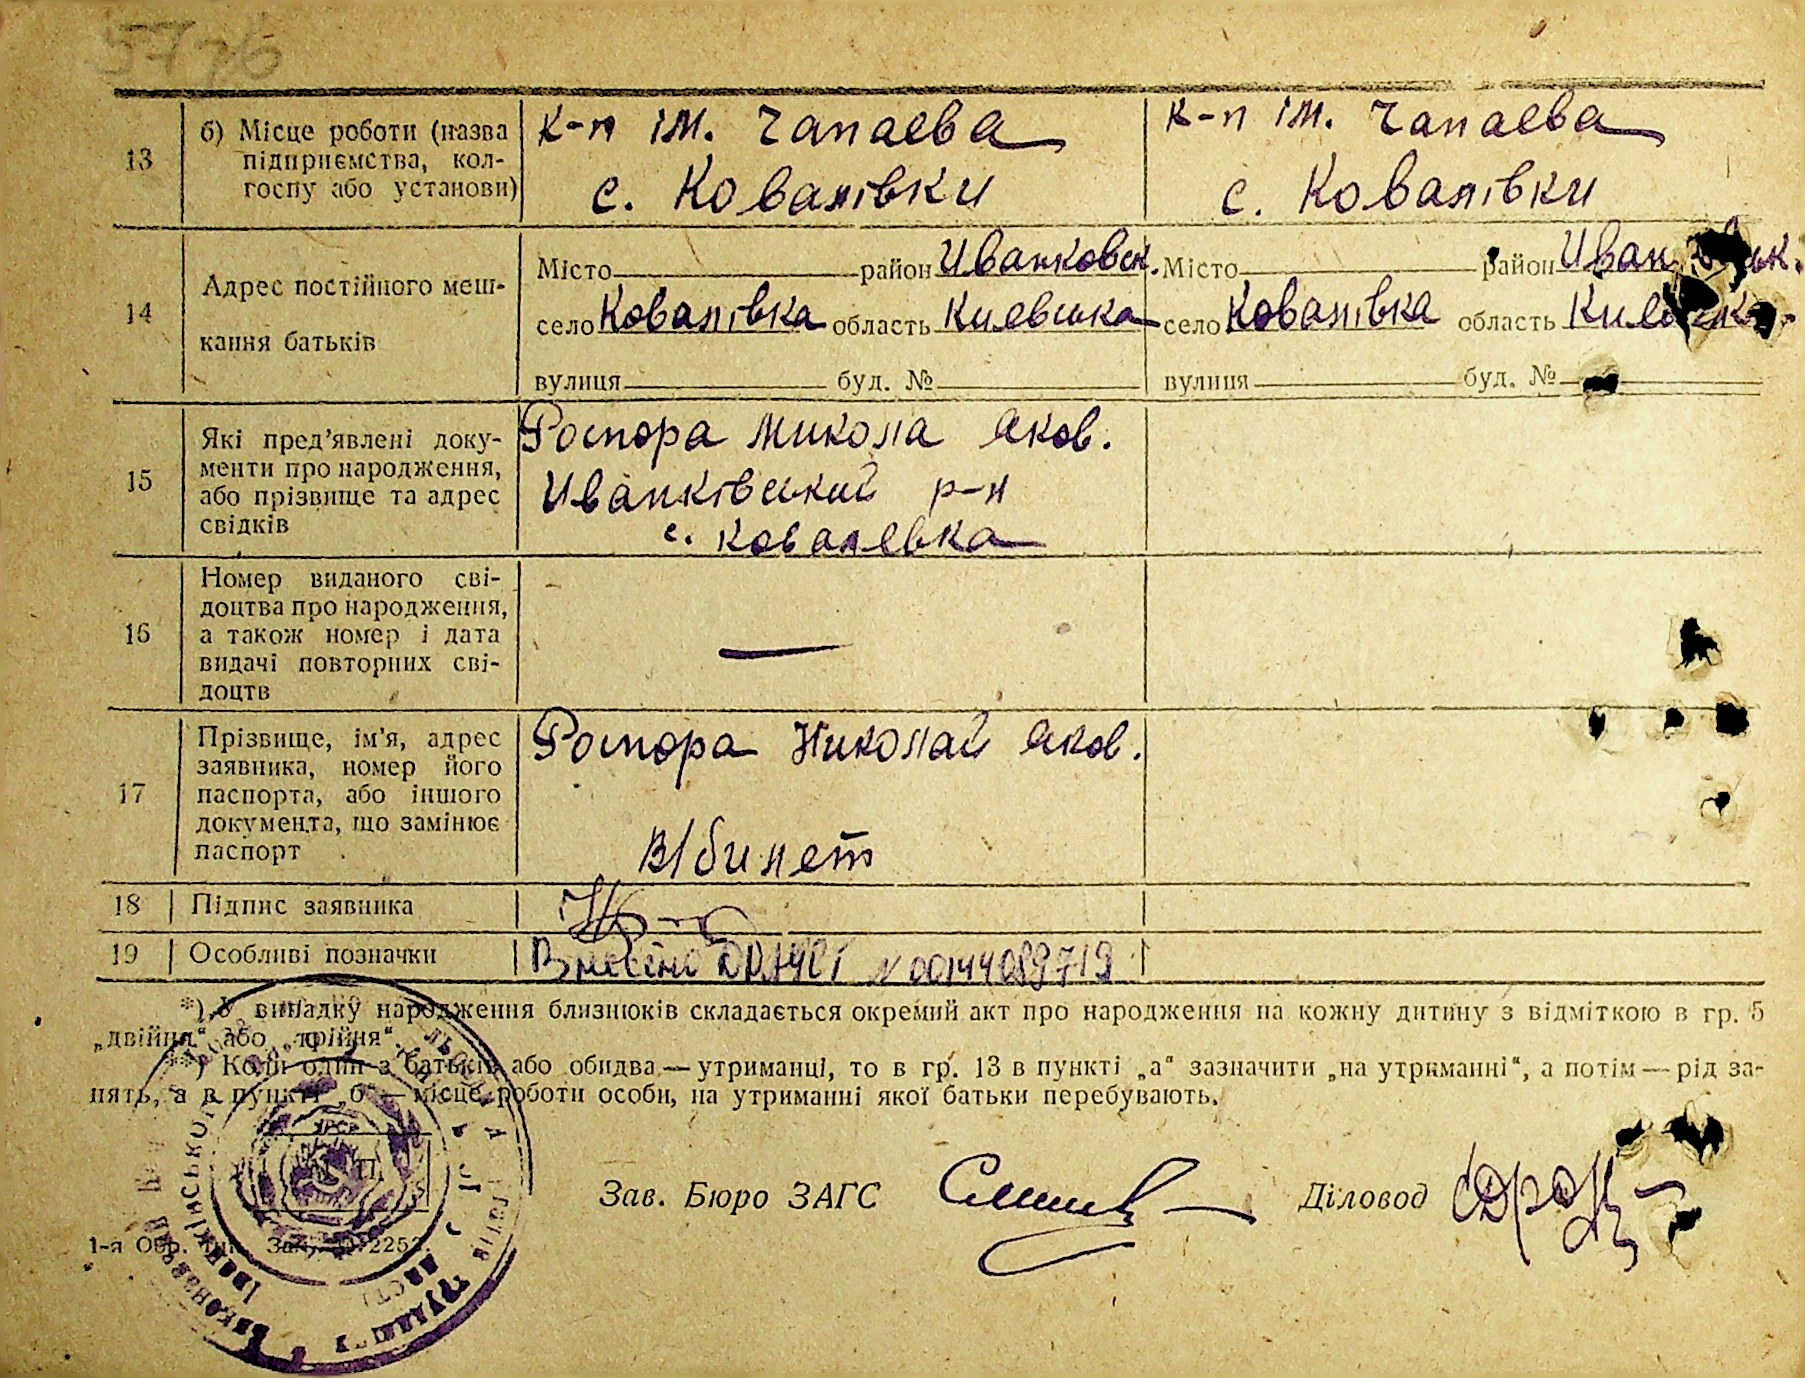 5776
13
б) Місце роботи (назва підприємства, колгоспу або установи)
к-п ім. Чапаева
с. Ковалівки
к-п ім. Чапаева
с. Ковалівки
14
Адрес постійного мешкання батьків
Місто район Иванковск.
село Ковалівка область Киевська
вулиця буд. №
Місто район
село Ковалівка область
вулиця буд. №
15
Які пред'явлені документи про народження, або прізвище та адрес свідків
Роспора Микола Яков.
Иванківський р-н
с. Ковалевка
16
Номер виданого свідоцтва про народження, а також номер і дата видачі повторних свідоцтв
—
17
Прізвище, ім'я, адрес заявника, номер його паспорта, або іншого документа, що замінює паспорт
Роспора Николай Яков.
В/билет
18 Підпис заявника
19 Особливі позначки
Внесено ДРАЦСГ № 00144089719
*) У випадку народження близнюків складається окремий акт про народження на кожну дитину з відміткою в гр. 5
„двійня“ або „трійня“.
**) Коли один з батьків або обидва — утриманці, то в гр. 13 в пункті „а“ зазначити „на утриманні“, а потім — рід за-
нять, а в пункті „б“ — місце роботи особи, на утриманні якої батьки перебувають.
Зав. Бюро ЗАГС
Діловод
1-я Обр. тип. Зак. 2253.